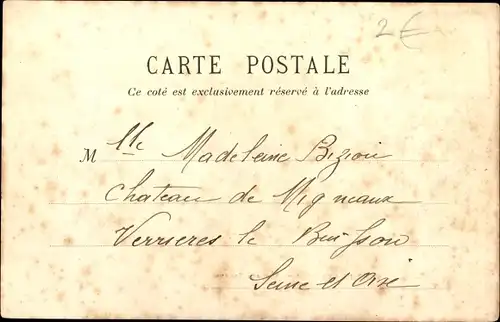 2€
CARTE POSTALE
Ce coté est exclusivement réservé à l'adresse
Mlle Madeleine Bizion
Chateau de Migneaux
Verrieres le Buisson
Seine et Oise